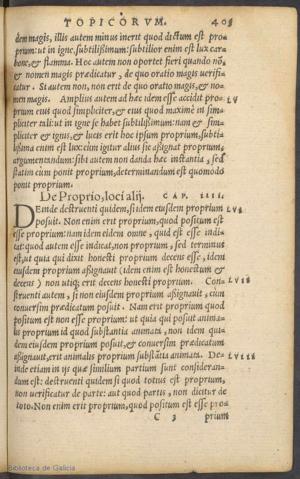 TOPICORVM. 403
dem magis, illis autem minus inerit quod dictum est pro-
prium: ut in igne, subtilissimum: subtilior enim est lux car-
bone, & flamma. Hoc autem non oportet fieri quando nõ,
& nomen magis prædicatur, de quo oratio magis uerifi-
catur. Si autem non, non erit de quo oratio magis, & no-
men magis. Amplius autem ad hæc idem esse accidit pro- LV
prium eius quod simpliciter, & eius quod maximè in sim-
pliciter tali: ut in igne se habet subtilissimum: nam & sim-
pliciter & ignis, & lucis erit hoc ipsum proprium, subti-
lissima enim est lux: cùm igitur alius sic assignat proprium,
argumentandum: sibi autem non danda hæc instantia, sed
statim cùm ponit proprium, determinandum est quomodo
ponit proprium.
De Proprio, loci alij. CAP. IIII.
DEinde destruenti quidem, si idem eiusdem proprium LVI
posuit. Non enim erit proprium, quod positum est
esse proprium: nam idem eidem omne, quid est esse indi-
cat: quod autem esse indicat, non proprium, sed terminus
est, ut quia qui dixit honesti proprium decens esse, idem
eiusdem proprium assignauit (idem enim est honestum &
decens) non utiq; erit decens honesti proprium. Con- LVII
struenti autem, si non eiusdem proprium assignauit, cùm
conuersim prædicatum posuit. Nam erit proprium quod
positum est non esse proprium: ut quia qui posuit anima-
lis proprium id quod substantia animata, non idem qui-
dem eiusdem proprium posuit, & conuersim prædicatum
assignauit, erit animalis proprium substãtia animata. De- LVIII
inde etiam in ijs quæ similium partium sunt consideran-
dum est: destruenti quidem si quod totius est proprium,
non uerificatur de parte: aut quod partis, non dicitur de
toto. Non enim erit proprium, quod positum est esse pro-
C 3 prium
Biblioteca de Galicia